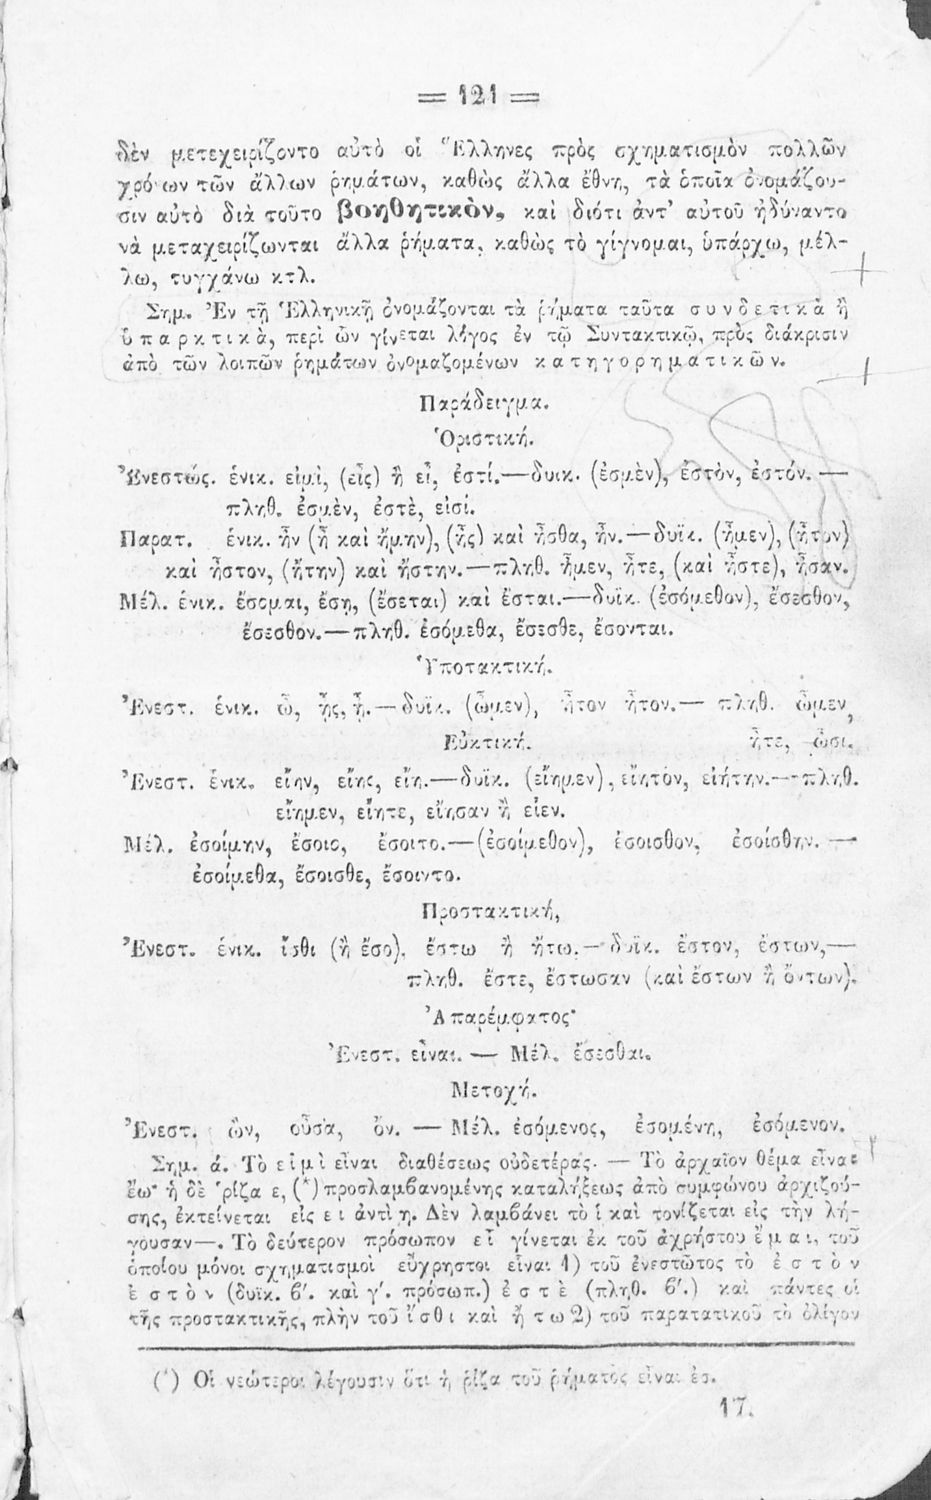 = 121 =
δὲν μετεχειρίζοντο αὐτὸ οἱ Ἕλληνες πρὸς σχηματισμὸν πολλῶν
χρόνων τῶν ἄλλων ῥημάτων, καθὼς ἄλλα ἔθνη, τὰ ὁποῖα ὀνομάζου-
σιν αὐτὸ διὰ τοῦτο βοηθητικὸν, καὶ διότι ἀντ' αὐτοῦ ἠδύναντο
νὰ μεταχειρίζωνται ἄλλα ῥήματα, καθὼς τὸ γίγνομαι, ὑπάρχω, μέλ-
λω, τυγχάνω κτλ.
Σημ. Ἐν τῇ Ἑλληνικῇ ὀνομάζονται τὰ ῥήματα ταῦτα συνδετικὰ ἢ
ὑπαρκτικὰ, περὶ ὧν γίνεται λόγος ἐν τῷ Συντακτικῷ, πρὸς διάκρισιν
ἀπὸ τῶν λοιπῶν ῥημάτων ὀνομαζομένων κατηγορηματικῶν.
Παράδειγμα.
Ὁριστική.
Ἐνεστώς. ἑνικ. εἰμὶ, (εἶς) ἢ εἶ, ἐστί.—δυικ. (ἐσμὲν), ἐστὸν, ἐστόν.—
πληθ. ἐσμὲν, ἐστὲ, εἰσί.
Παρατ. ἑνικ. ἦν (ἦ καὶ ἤμην), (ἦς) καὶ ἦσθα, ἦν.—δυϊκ. (ἦμεν), (ἦτον)
καὶ ἦστον, (ἤτην) καὶ ἤστην.—πληθ. ἦμεν, ἦτε, (καὶ ἦστε), ἦσαν.
Μέλ. ἑνικ. ἔσομαι, ἔσῃ, (ἔσεται) καὶ ἔσται.—δυϊκ. (ἐσόμεθον), ἔσεσθον,
ἔσεσθον.—πληθ. ἐσόμεθα, ἔσεσθε, ἔσονται.
Ὑποτακτική.
Ἐνεστ. ἑνικ. ὦ, ᾖς, ᾖ.—δυϊκ. (ὦμεν), ἦτον ἦτον.— πληθ. ὦμεν,
Εὐκτική. ἦτε, ὦσι.
Ἐνεστ. ἑνικ. εἴην, εἴης, εἴη.—δυϊκ. (εἴημεν), εἴητὸν, εἰήτην.—πληθ.
εἴημεν, εἴητε, εἴησαν ἢ εἶεν.
Μέλ. ἐσοίμην, ἔσοιο, ἔσοιτο.—(ἐσοίμεθον), ἔσοισθον, ἐσοίσθην.—
ἐσοίμεθα, ἔσοισθε, ἔσοιντο.
Προστακτική,
Ἐνεστ. ἑνικ. ἴσθι (ἢ ἔσο), ἔστω ἢ ἤτω.—δυϊκ. ἔστον, ἔστων,—
πληθ. ἔστε, ἔστωσαν (καὶ ἔστων ἢ ὄντων).
Ἀπαρέμφατος·
Ἐνεστ. εἶναι. — Μέλ. ἔσεσθαι.
Μετοχή.
Ἐνεστ. ὢν, οὖσα, ὄν. — Μέλ. ἐσόμενος, ἐσομένη, ἐσόμενον.
Σημ. ά. Τὸ εἰμὶ εἶναι διαθέσεως οὐδετέρας. — Τὸ ἀρχαῖον θέμα εἶναι
ἔω· ἡ δὲ ῥίζα ε, (*) προσλαμβανομένης καταλήξεως ἀπὸ συμφώνου ἀρχιζού-
σης, ἐκτείνεται εἰς ει ἀντὶ η. Δὲν λαμβάνει τὸ ἱ καὶ τονίζεται εἰς τὴν λή-
γουσαν—. Τὸ δεύτερον πρόσωπον εἶ γίνεται ἐκ τοῦ ἀχρήστου ἔμαι, τοῦ
ὁποίου μόνοι σχηματισμοὶ εὔχρηστοι εἶναι 1) τοῦ ἐνεστῶτος τὸ ἐστὸν
ἐστὸν (δυϊκ. β'. καὶ γ'. πρόσωπ.) ἐστὲ (πληθ. β'.) καὶ πάντες οἱ
τῆς προστακτικῆς, πλὴν τοῦ ἴσθι καὶ ἤτω 2) τοῦ παρατατικοῦ τὸ ὀλίγον
(*) Οἱ νεώτεροι λέγουσιν ὅτι ἡ ῥίζα τοῦ ῥήματος εἶναι ἐσ.
17.